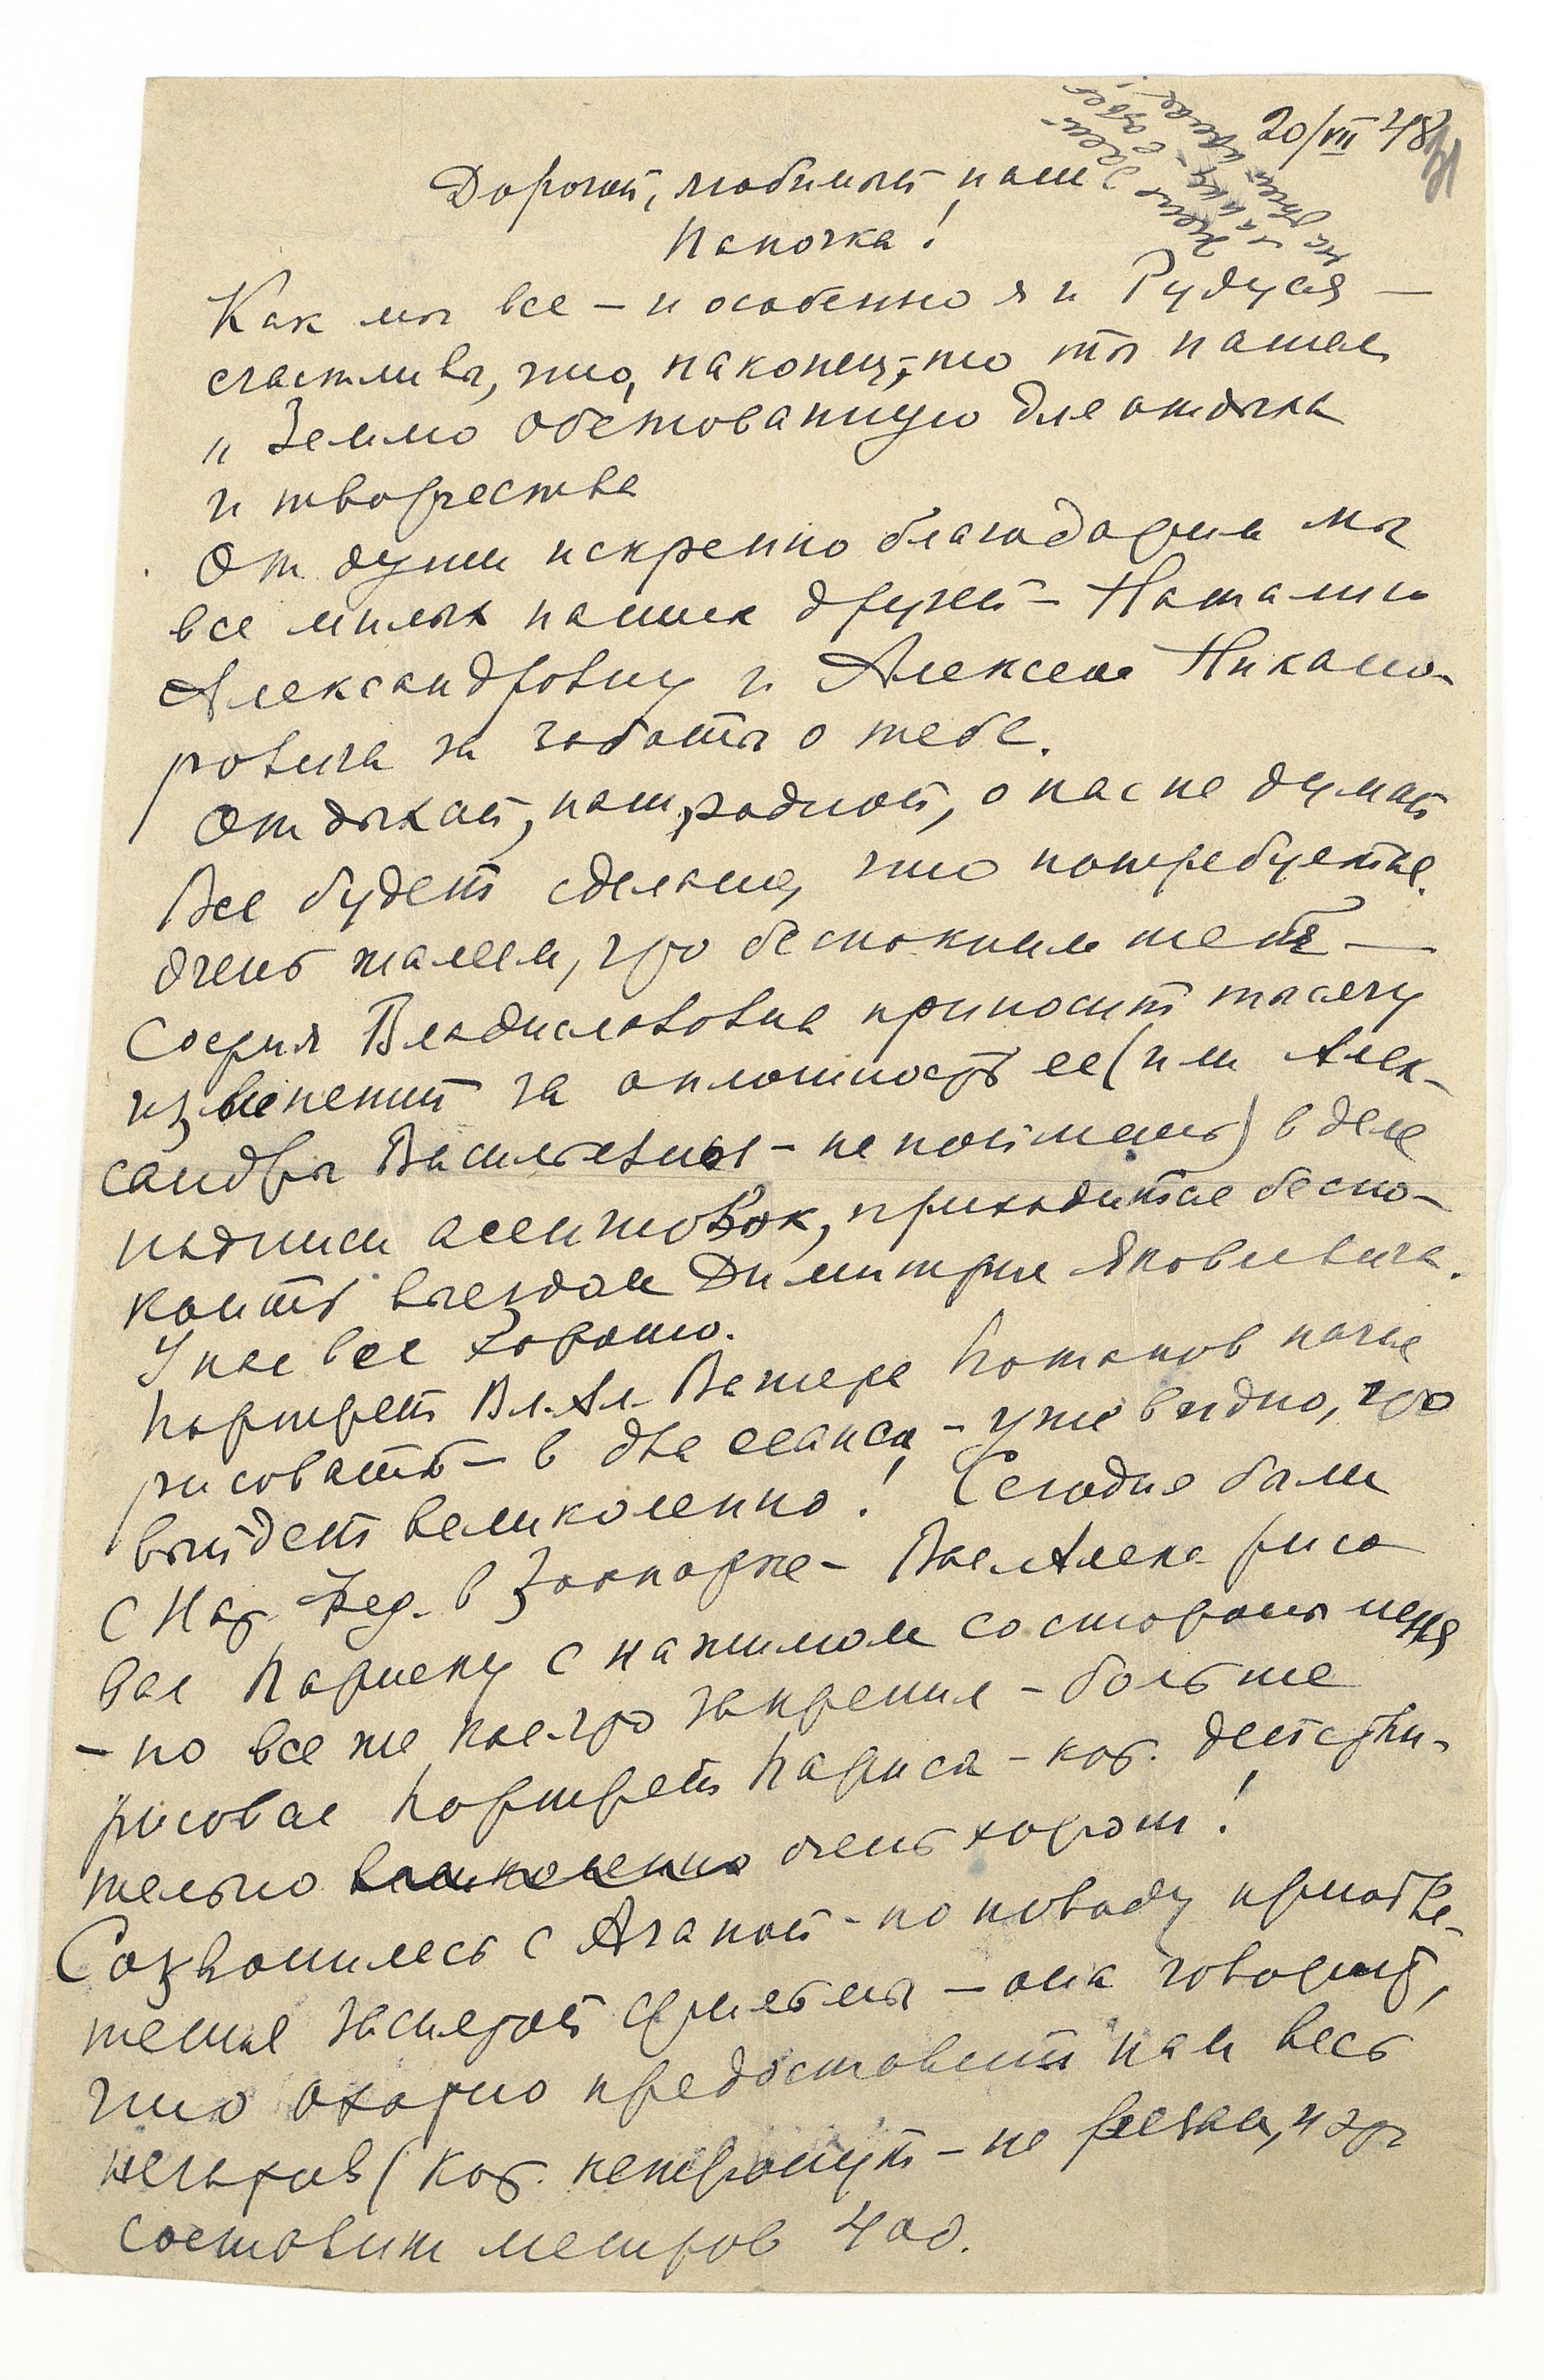 20/VII 48
Дорогой, любимый наш
Папочка!
Как мы все – и особенно я и Рудуся –
счастливы, что, наконец-то ты нашел
„Землю обетованную для отдыха
и творчества
От души искренно благодарим мы
все милых наших друзей – Наталию
Александровну и Алексея Никано-
ровича за заботы о тебе.
Отдыхай, наш родной, о нас не думай
Все будет сделано, что потребуется.
Очень жалеем, что беспокоим тебя –
София Владиславовна приносит тысячу
извинений за оплошность ее (или Алек-
сандры Васильевны – не поймешь) в деле
подписи ассигновок, приходится беспо-
коить выездом Димитрия Яковлевича.
У нас все хорошо.
Портрет Вл. Ал. Ватере Потапов начал
рисовать – в два сеанса – уже видно, что
выйдет великолепно! Сегодня были
с Над. Фед. в Зоопарке – Вас Алекс рисо
вал с нажимом со стороны меня
– но все же кое-что закрепил – больше
рисовал портрет Париса – кот. действи-
тельно великолепно очень хорош!
Созвонилась с Агапой – по поводу приобре-
тения заснятой фильмы – она говорит,
что охотно предоставит нам весь
негатив (кот. нетронут – не резан, и это
составит метров 400.